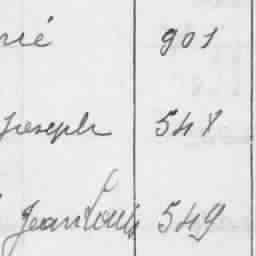 rié 901
Joseph 548
Jean Louis 549